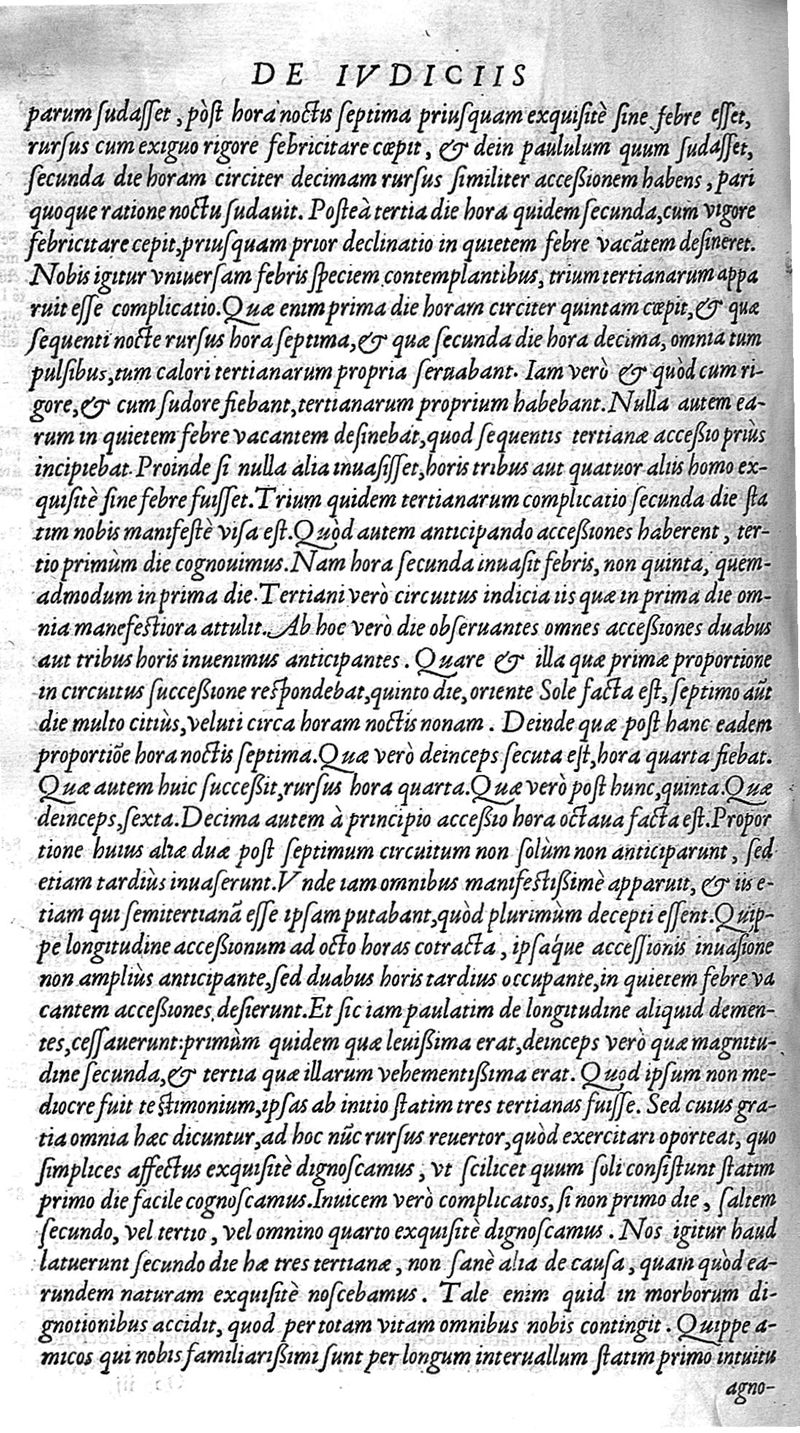 DE IVDICIIS
parum sudasset, pòst hora noctis septima priusquam exquisitè sine febre esset,
rursus cum exiguo rigore febricitare cœpit, & dein paululum quum sudasset,
secunda die horam circiter decimam rursus similiter accessionem habens, pari
quoque ratione noctu sudauit. Posteà tertia die hora quidem secunda, cum vigore
febricitare cepit, priusquam prior declinatio in quietem febre vacãtem desineret.
Nobis igitur vniuersam febris speciem contemplantibus, trium tertianarum appa
ruit esse complicatio. Quæ enim prima die horam circiter quintam cœpit, & quæ
sequenti nocte rursus hora septima, & quæ secunda die hora decima, omnia tum
pulsibus, tum calori tertianarum propria seruabant. Iam verò & quòd cum ri-
gore, & cum sudore fiebant, tertianarum proprium habebant. Nulla autem ea-
rum in quietem febre vacantem desinebat, quod sequentis tertianæ accessio priùs
incipiebat. Proinde si nulla alia inuasisset, horis tribus aut quatuor aliis homo ex-
quisitè sine febre fuisset. Trium quidem tertianarum complicatio secunda die sta
tim nobis manifestè visa est. Quòd autem anticipando accessiones haberent, ter-
tio primùm die cognouimus. Nam hora secunda inuasit febris, non quinta, quem-
admodum in prima die. Tertiani verò circuitus indicia iis quæ in prima die om-
nia manefestiora attulit. Ab hoc verò die obseruantes omnes accessiones duabus
aut tribus horis inuenimus anticipantes. Quare & illa quæ primæ proportione
in circuitus successione respondebat, quinto die, oriente Sole facta est, septimo aũt
die multo citiùs, veluti circa horam noctis nonam. Deinde quæ post hanc eadem
proportiõe hora noctis septima. Quæ verò deinceps secuta est, hora quarta fiebat.
Quæ autem huic successit, rursus hora quarta. Quæ verò post hunc, quinta. Quæ
deinceps, sexta. Decima autem à principio accessio hora octaua facta est. Propor
tione huius aliæ duæ post septimum circuitum non solùm non anticiparunt, sed
etiam tardiùs inuaserunt. Vnde iam omnibus manifestissimè apparuit, & iis e-
tiam qui semitertianã esse ipsam putabant, quòd plurimùm decepti essent. Quip-
pe longitudine accessionum ad octo horas cotracta, ipsáque accessionis inuasione
non ampliùs anticipante, sed duabus horis tardius occupante, in quietem febre va
cantem accessiones desierunt. Et sic iam paulatim de longitudine aliquid demen-
tes, cessauerunt: primùm quidem quæ leuissima erat, deinceps verò quæ magnitu-
dine secunda, & tertia quæ illarum vehementissima erat. Quod ipsum non me-
diocre fuit testimonium, ipsas ab initio statim tres tertianas fuisse. Sed cuius gra-
tia omnia hæc dicuntur, ad hoc nũc rursus reuertor, quòd exercitari oporteat, quo
simplices affectus exquisitè dignoscamus, vt scilicet quum soli consistunt statim
primo die facile cognoscamus. Inuicem verò complicatos, si non primo die, saltem
secundo, vel tertio, vel omnino quarto exquisitè dignoscamus. Nos igitur haud
latuerunt secundo die hæ tres tertianæ, non sanè alia de causa, quam quòd ea-
rundem naturam exquisitè noscebamus. Tale enim quid in morborum di-
gnotionibus accidit, quod per totam vitam omnibus nobis contingit. Quippe a-
micos qui nobis familiarissimi sunt per longum interuallum statim primo intuitu
agno-